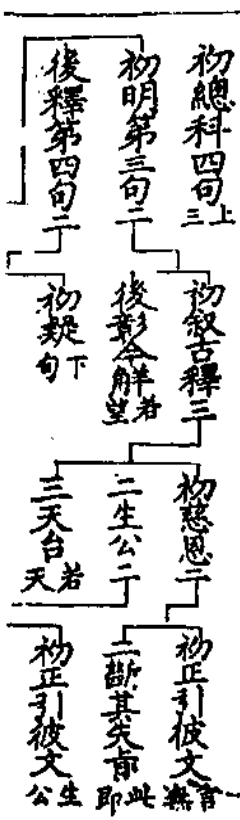 初總科四句三上
初明第三句二
後釋第四句二
初叙古釋三
後彰今解若望
初疑下句
初慈恩二
二生公二
三天台若天
初正引彼文言無
二斷其失旨此即
初正引彼文生公